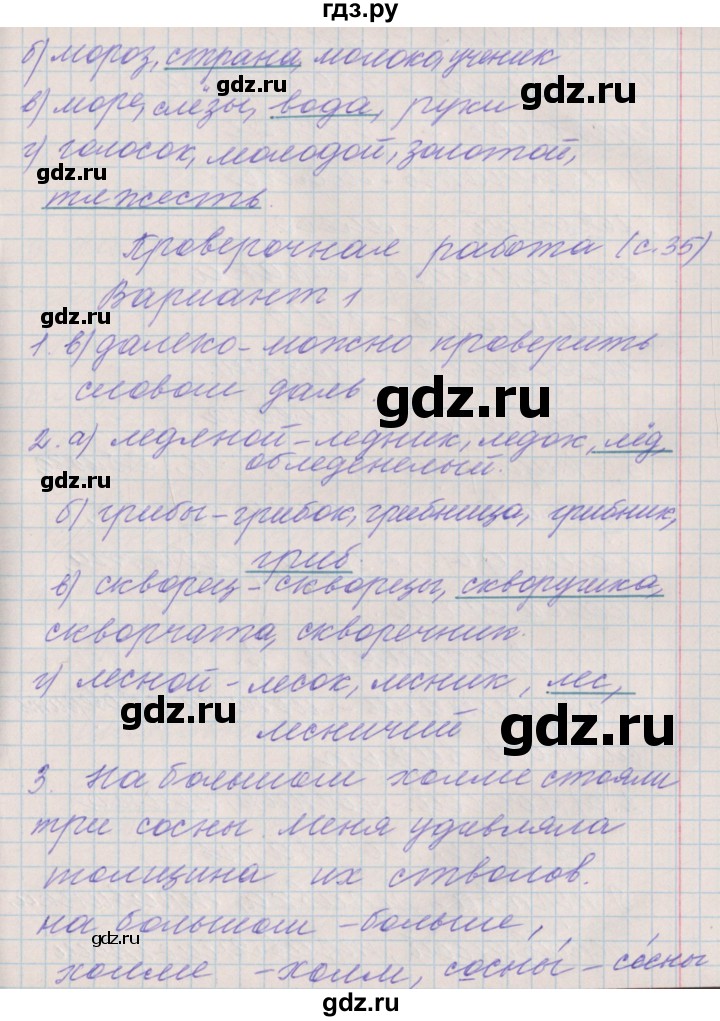 гдз.ру
б) мороз, страна, молоко, ученик
в) море, слёзы, вода, руки
г) голосок, молодой, золотой,
тяжесть.
Проверочная работа (с. 35)
Вариант 1
1. в) далеко - можно проверить
словом даль.
2. а) ледяной - ледник, ледок, лёд,
обледенелый.
б) грибы - грибок, грибница, грибник,
гриб
в) скворец - скворцы, скворушка,
скворчата, скворечник.
г) лесной - лесок, лесник, лес,
лесничий
3. На большом холме стояли
три сосны. Меня удивляла
толщина их стволов.
на большом - больше,
холме - холм, сосны́ - со́сны
gdz.ru
gdz.ru
gdz.ru
gdz.ru
gdz.ru
gdz.ru
gdz.ru
gdz.ru
gdz.ru
gdz.ru